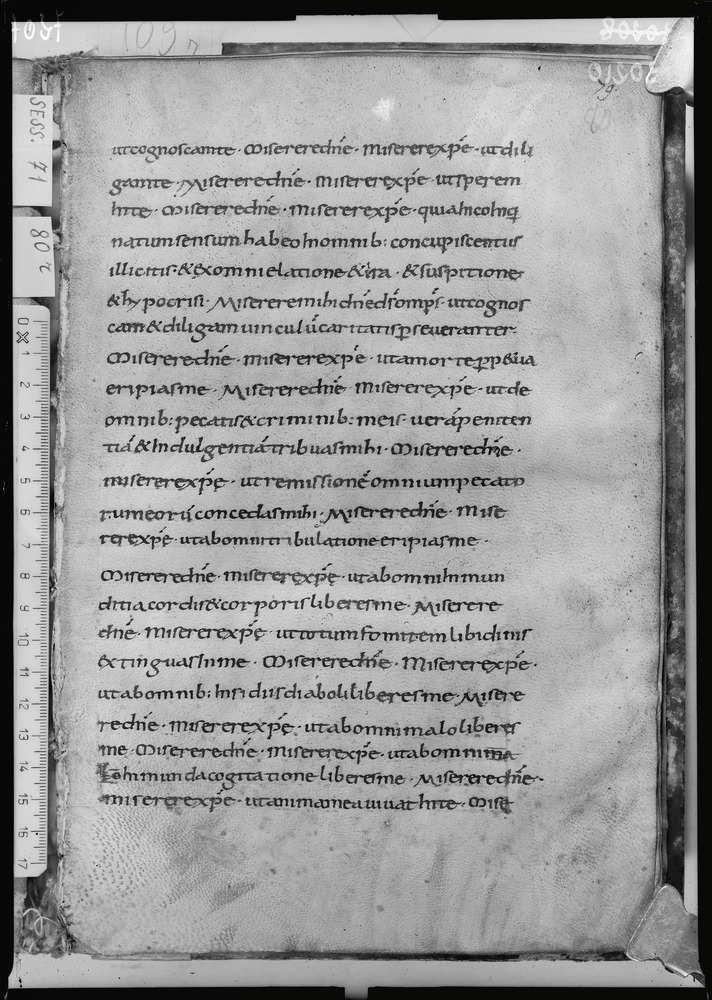 109 r
79
80
SESS. 71
80 r
0 1 2 3 4 5 6 7 8 9 10 11 12 13 14 15 16 17
utcognoscamte · Misereredn̄e · miserere xp̄e · utdili
gamte · Misereredn̄e · miserere xp̄e · utsperem
Inte · Misereredn̄e · miserere xp̄e · quia IncoInq
natumsensumhabeoInomnib: concupiscentiis
illicitis · & exomnielatione & ira · & suspitione
& hypocrisi · Misereremihidn̄e d̄s omp̄s · utcognos
cam & diligamuinculū caritatis p̱seueranter ·
Misereredn̄e · miserere xp̄e · utamorte p̱p&ua
eripiasme · Misereredn̄e miserere xp̄e · utde
omnib: pecatis & criminib: meis · uerā peniten
tiā & Indulgentiā tribuasmihi · Misereredn̄e ·
miserere xp̄e · utremissionē omniumpecato
rumeorū concedasmihi · Misereredn̄e · mise
rere xp̄e · utabomnitribulationeeripiasme ·
Misereredn̄e · miserere xp̄e · utabomniInmun
ditiacordis & corporisliberesme · Miserere
dn̄e · miserere xp̄e · uttotumfomitemlibidinis
extinguasInme · Misereredn̄e · Miserere xp̄e ·
utabomnib: Insidiisdiaboliliberesme · Misere
redn̄e · miserere xp̄e · utabomnimaloliberes
me · Misereredn̄e · miserere xp̄e · utabomni
Inmundacogitationeliberesme · Misereredn̄e ·
miserere xp̄e · utanimameauiuatInte · Mise